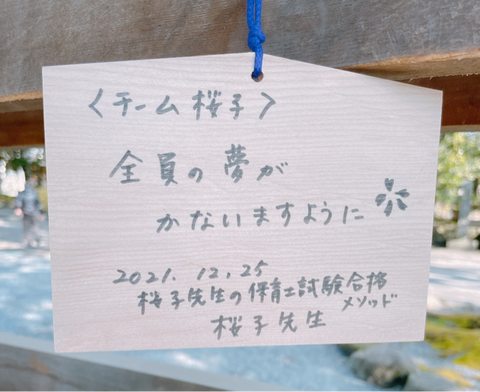 〈チーム桜子〉
全員の夢が
かないますように
2021.12.25
桜子先生の保育士試験合格
メソッド
桜子先生